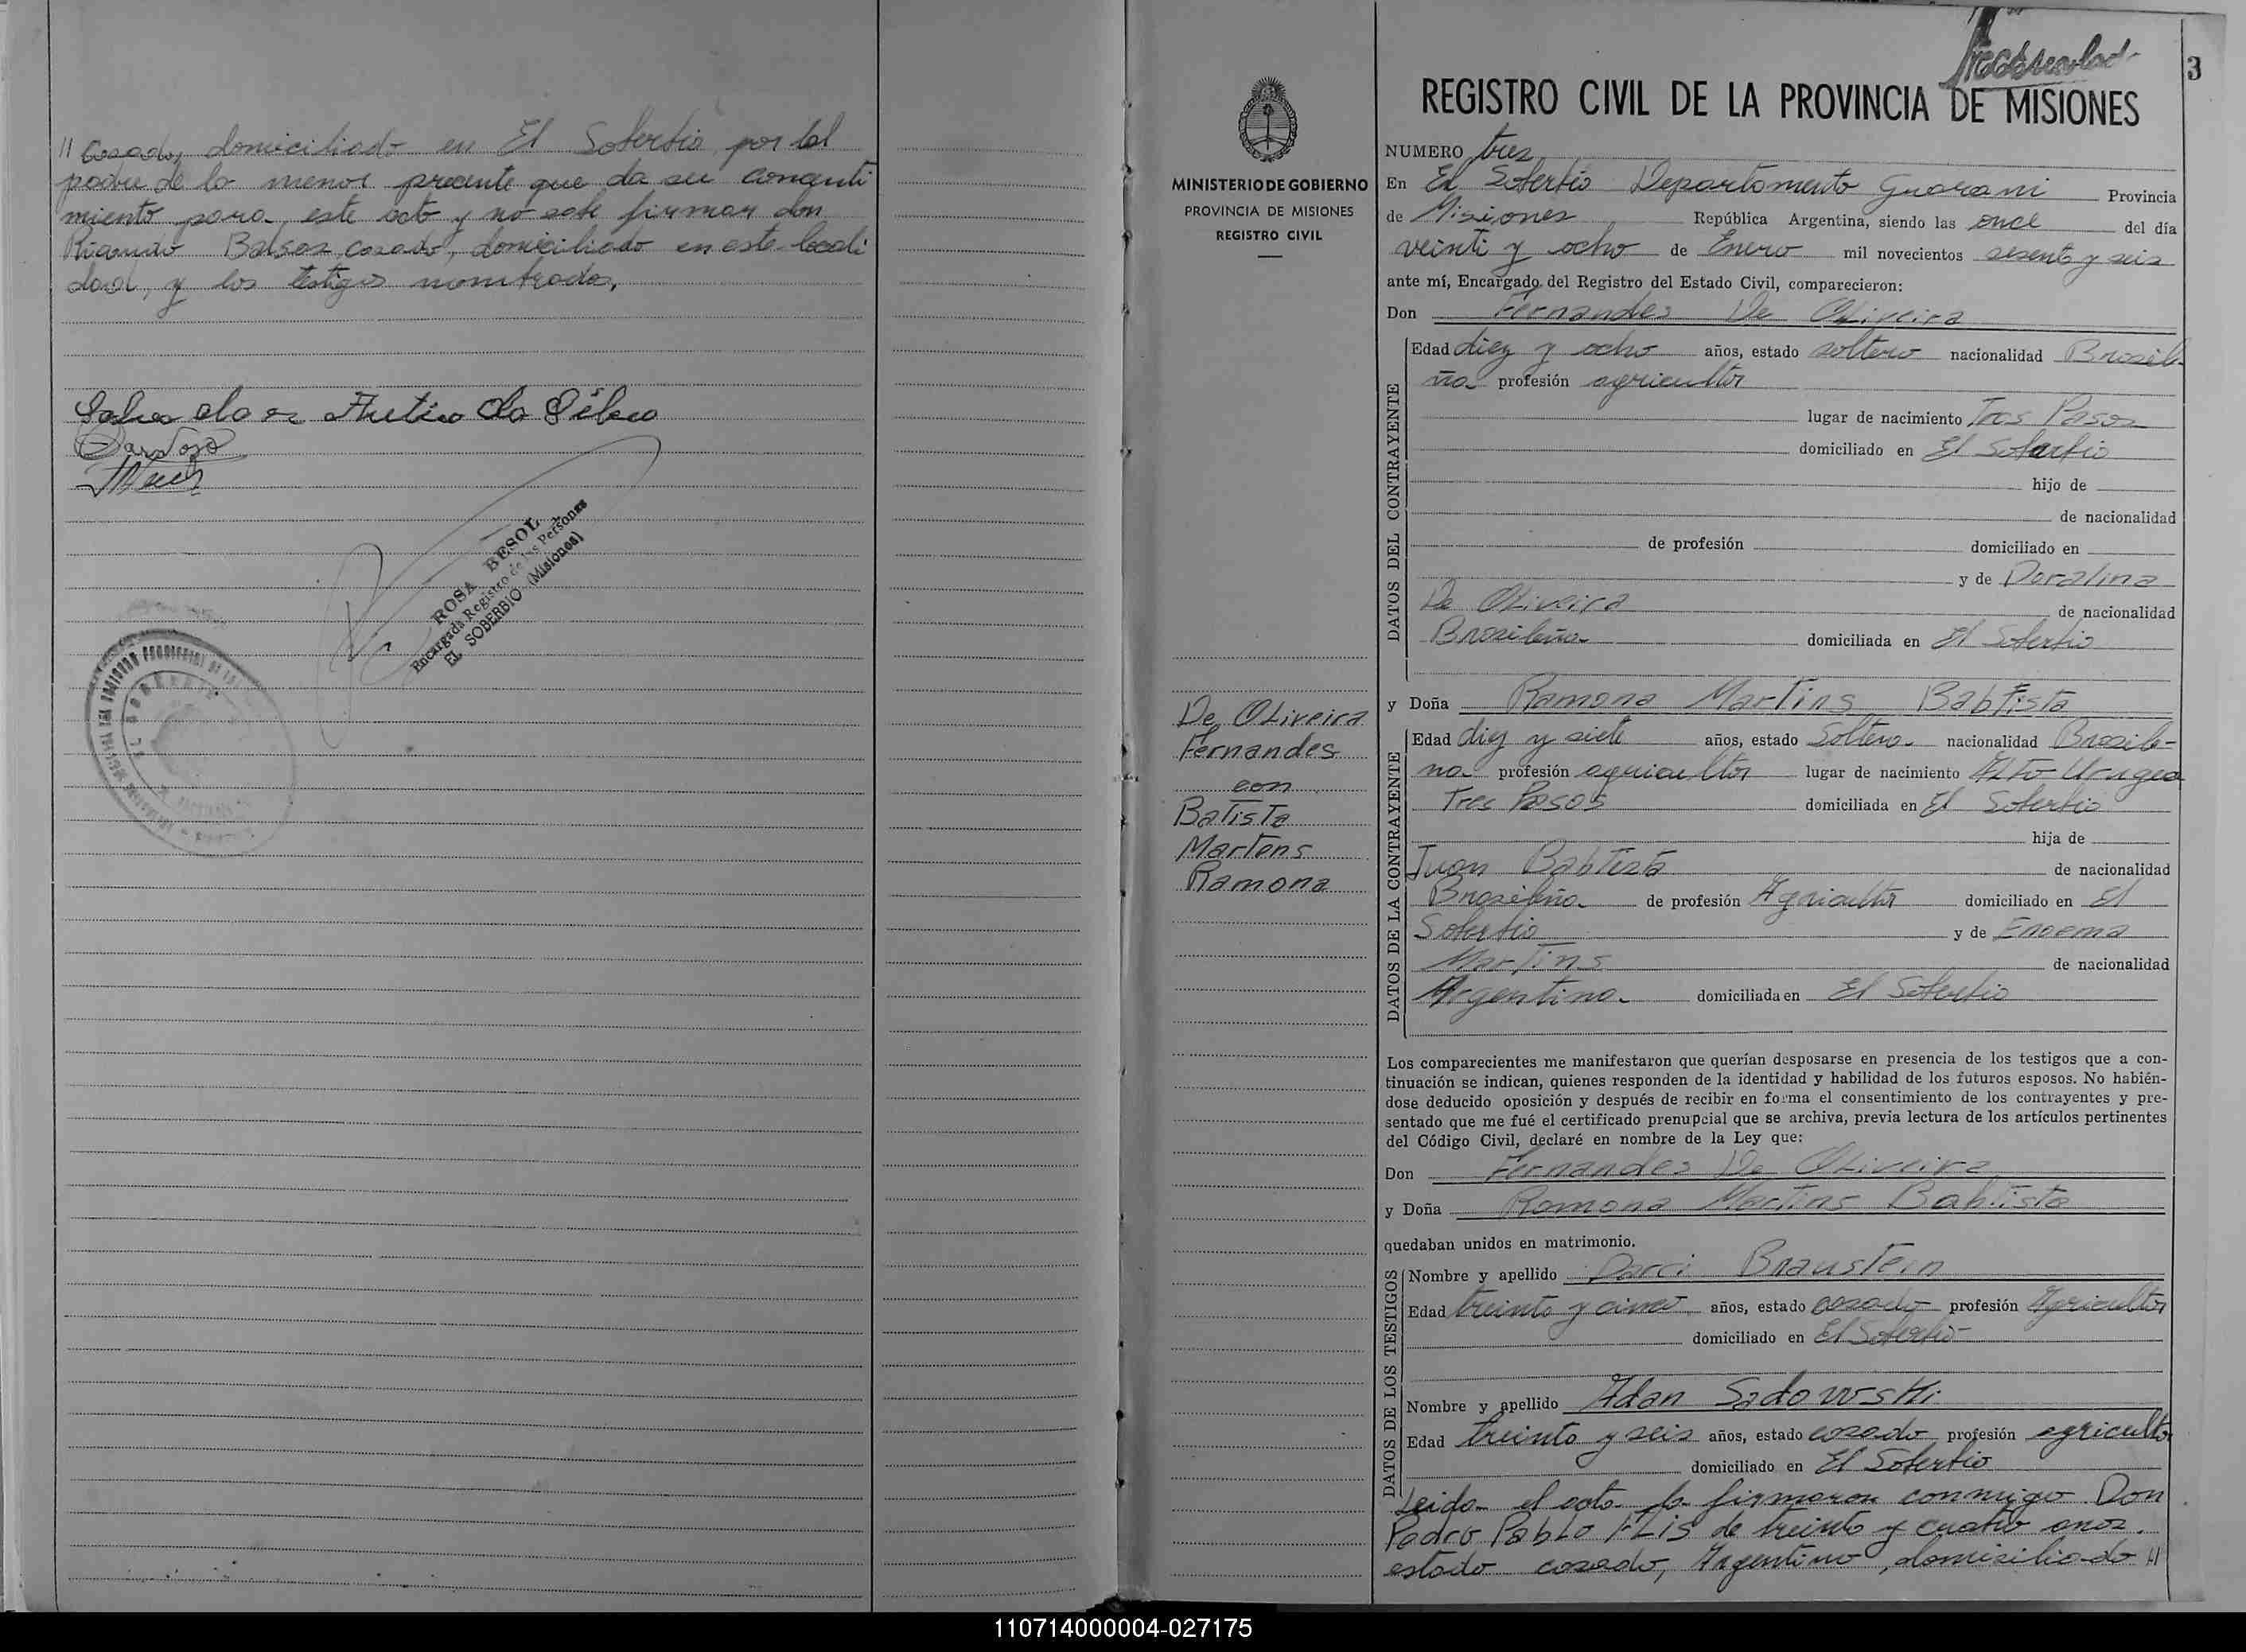 // Casado, domiciliado en El Soberbio por tal
padre de la menor presente que da su consenti
miento para este acto y no sabe firmar don
Ricardo Balsos casado, domiciliado en esta locali
dad, y los testigos nombrados.
ROSA BESOL
Encargada Registro de las Personas
EL SOBERBIO (Misiones)
3
REGISTRO CIVIL DE LA PROVINCIA DE MISIONES
MINISTERIO DE GOBIERNO
PROVINCIA DE MISIONES
REGISTRO CIVIL
De Oliveira
Fernandes
con
Batista
Martens
Ramona
NUMERO tres
En El Soberbio Departamento Guarani Provincia
de Misiones República Argentina, siendo las once del día
veinti y ocho de Enero mil novecientos sesenta y seis
ante mí, Encargado del Registro del Estado Civil, comparecieron:
Don Fernandes De Oliveira
DATOS DEL CONTRAYENTE
Edad diez y ocho años, estado soltero nacionalidad Brasile-
ña profesión agricultor
lugar de nacimiento Tres Pasos
domiciliado en El Soberbio
hijo de
de nacionalidad
de profesión domiciliado en
y de Doralina
De Oliveira de nacionalidad
Brasileña domiciliada en El Soberbio
y Doña Ramona Martins Babtista
DATOS DE LA CONTRAYENTE
Edad diez y siete años, estado Soltera nacionalidad Brasile-
na profesión agricultor lugar de nacimiento Alto Urugua
Tres Pasos domiciliada en El Soberbio
hija de
Juan Babtista de nacionalidad
Brasileña de profesión Agricultor domiciliado en El
Soberbio y de Enoema
Martins de nacionalidad
Argentina domiciliada en El Soberbio
Los comparecientes me manifestaron que querían desposarse en presencia de los testigos que a con-
tinuación se indican, quienes responden de la identidad y habilidad de los futuros esposos. No habién-
dose deducido oposición y después de recibir en forma el consentimiento de los contrayentes y pre-
sentado que me fué el certificado prenupcial que se archiva, previa lectura de los artículos pertinentes
del Código Civil, declaré en nombre de la Ley que:
Don Fernandes De Oliveira
y Doña Ramona Martins Babtista
quedaban unidos en matrimonio.
DATOS DE LOS TESTIGOS
Nombre y apellido Darci Braustein
Edad treinta y cinco años, estado casado profesión Agricultor
domiciliado en El Soberbio
Nombre y apellido Adan Sadowski
Edad treinta y seis años, estado casado profesión agricultor
domiciliado en El Soberbio
Leida el acta la firmaron conmigo Don
Pedro Pablo Flis de treinta y cuatro anos.
estado casado, Argentino, domicilio do //
110714000004-027175